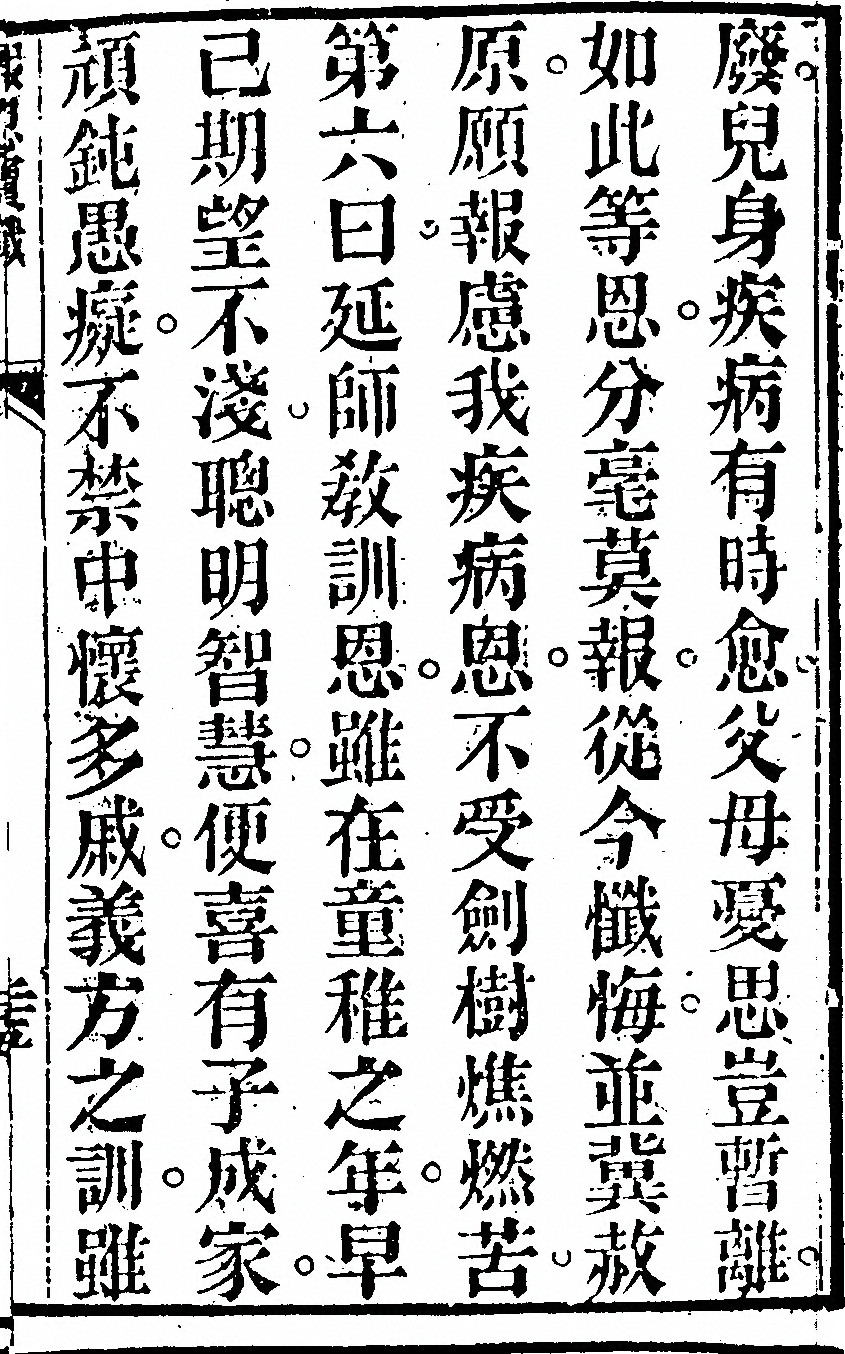 廢。兒身疾病有時愈。父母憂思豈暫離。
如此等恩。分毫莫報。從今懺悔。並冀赦
原。願報慮我疾病恩。不受劍樹燋燃苦。
第六曰。延師教訓恩。雖在童稚之年。早
已期望不淺。聰明智慧。便喜有子成家。
頑鈍愚癡。不禁中懷多戚。義方之訓。雖